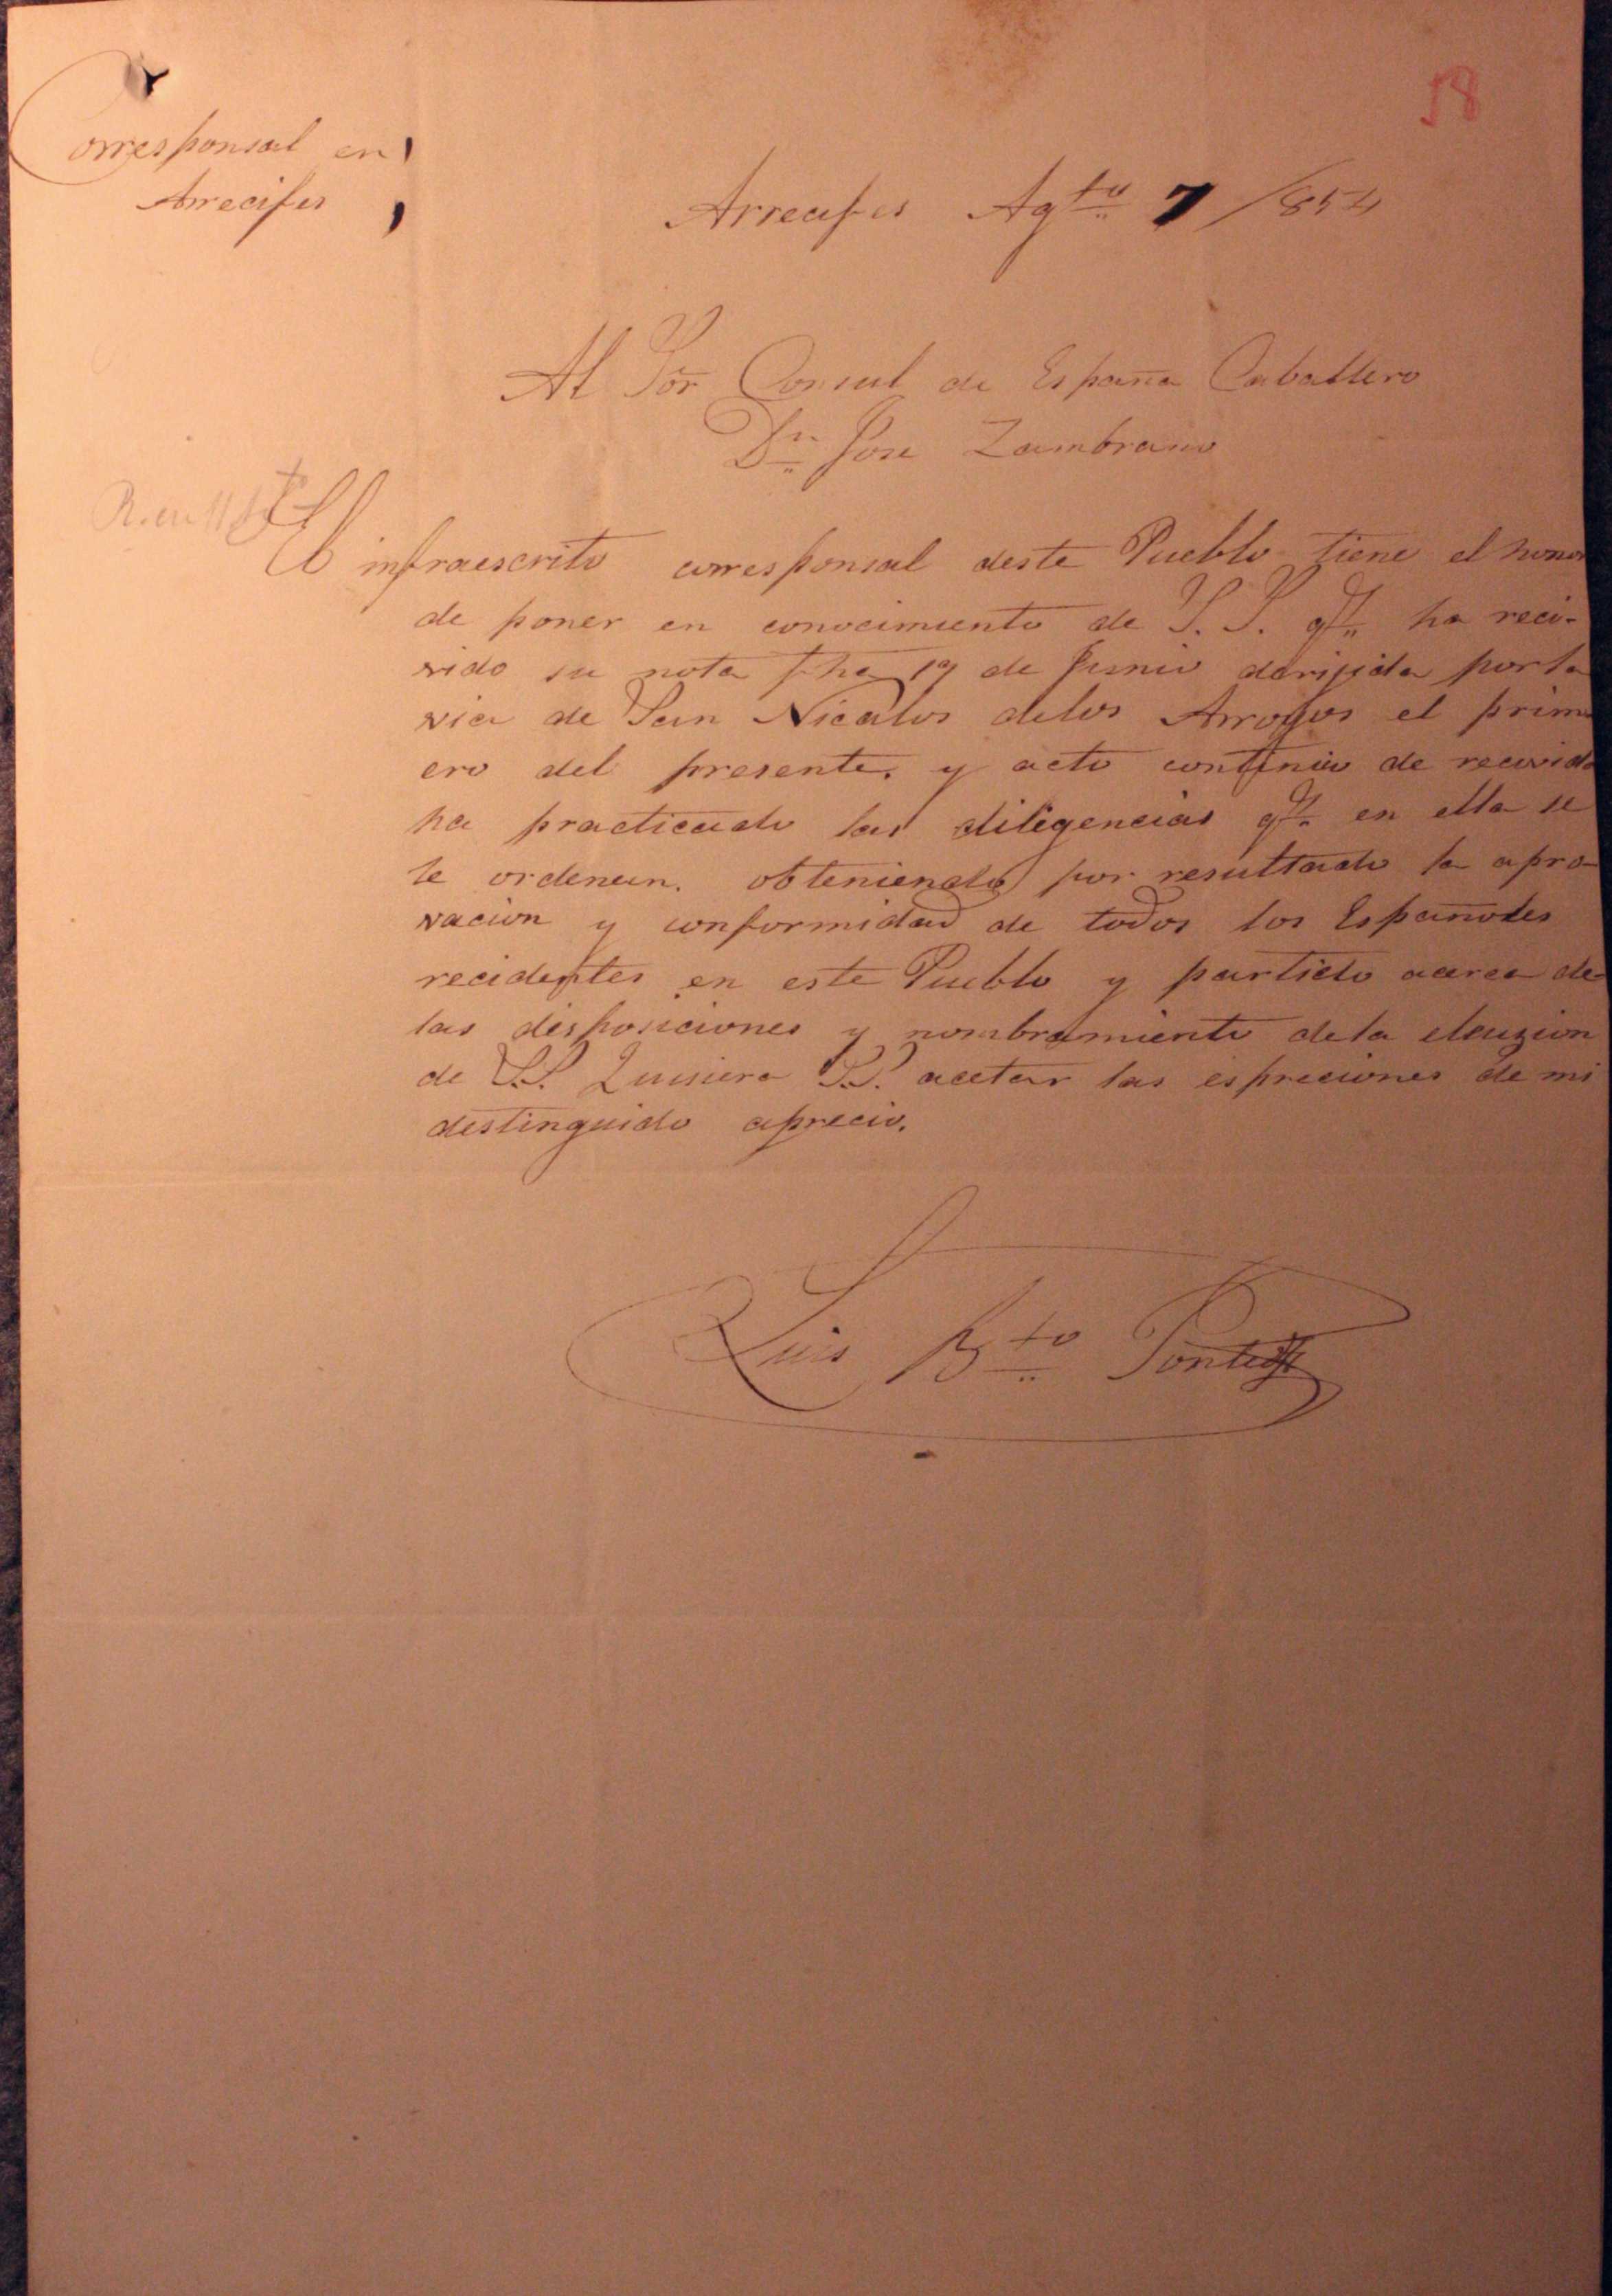 18
Corresponsal en
Arrecifes
Arrecifes Agto 7/854
Al Sor Consul de España Caballero
Dn Jose Zambrano
R. en 11
El infraescrito corresponsal deste Pueblo tiene el honor
de poner en conocimiento de S. S. qe ha reci-
vido su nota fha 19 de Junio dirijida por la
via de San Nicolas delos Arroyos el prim
ero del presente. y acto continuo de recivida
ha practicado las diligencias qe en ella se
le ordenan. obteniendo por resultado la apro-
vacion y conformidad de todos los Españoles
recidentes en este Pueblo y partido acerca de
las disposiciones y nombramiento dela eleuzion
de S.S. Quisiera S.S. acetar las espreciones de mi
destinguido aprecio.
Luis Bto Pontes